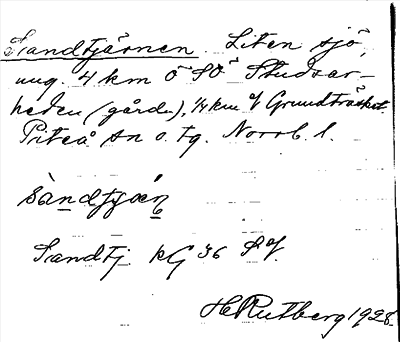 Sandtjärnen. Liten sjö,
ung. 4 km Ö SÖ Studsar-
heden (gård), 1/4 km of Grundträsket.
Piteå sn o. tg. Norrb. l.
Sandtj. kG 36 Sof.
H Rutberg 1928.